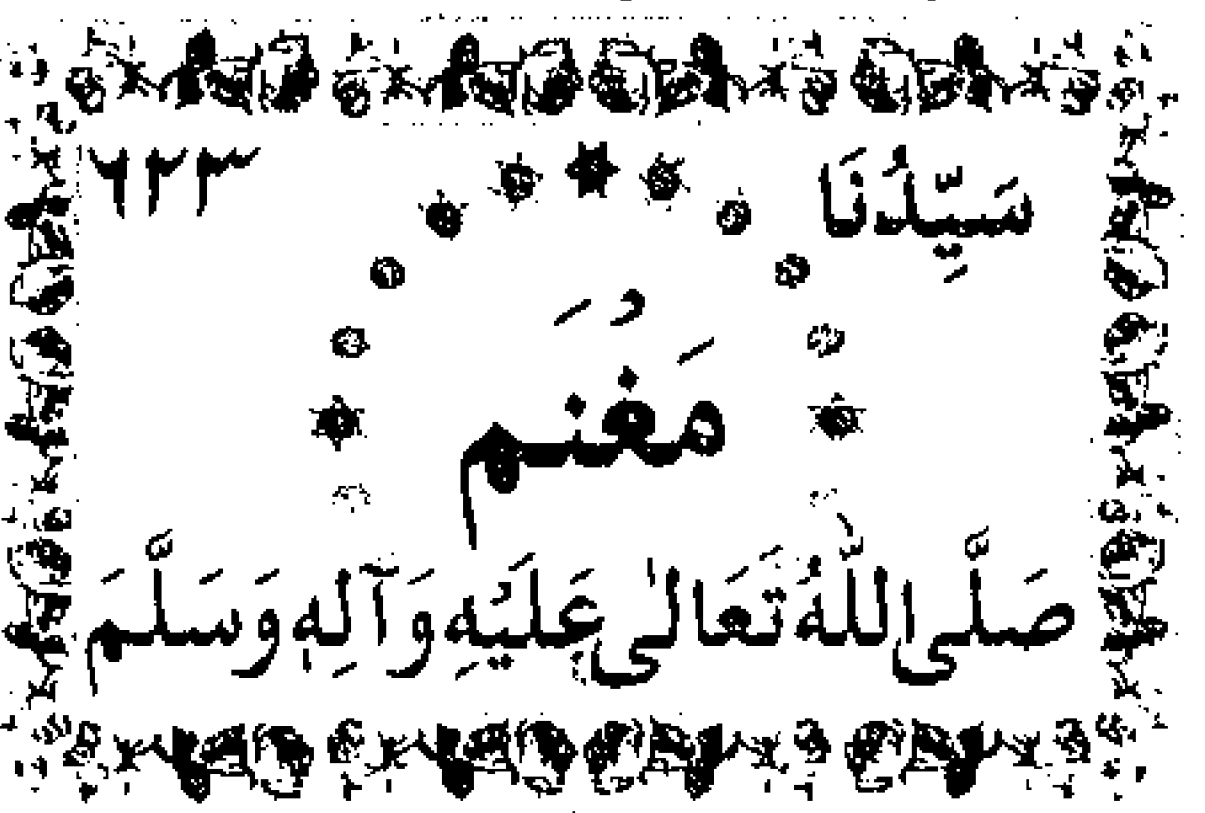 سَيِّدُنَا ٦٢٣
مَغْنَم
صَلَّى اللّٰهُ تَعَالىٰ عَلَيْهِ وَآلِهٖ وَسَلَّمَ